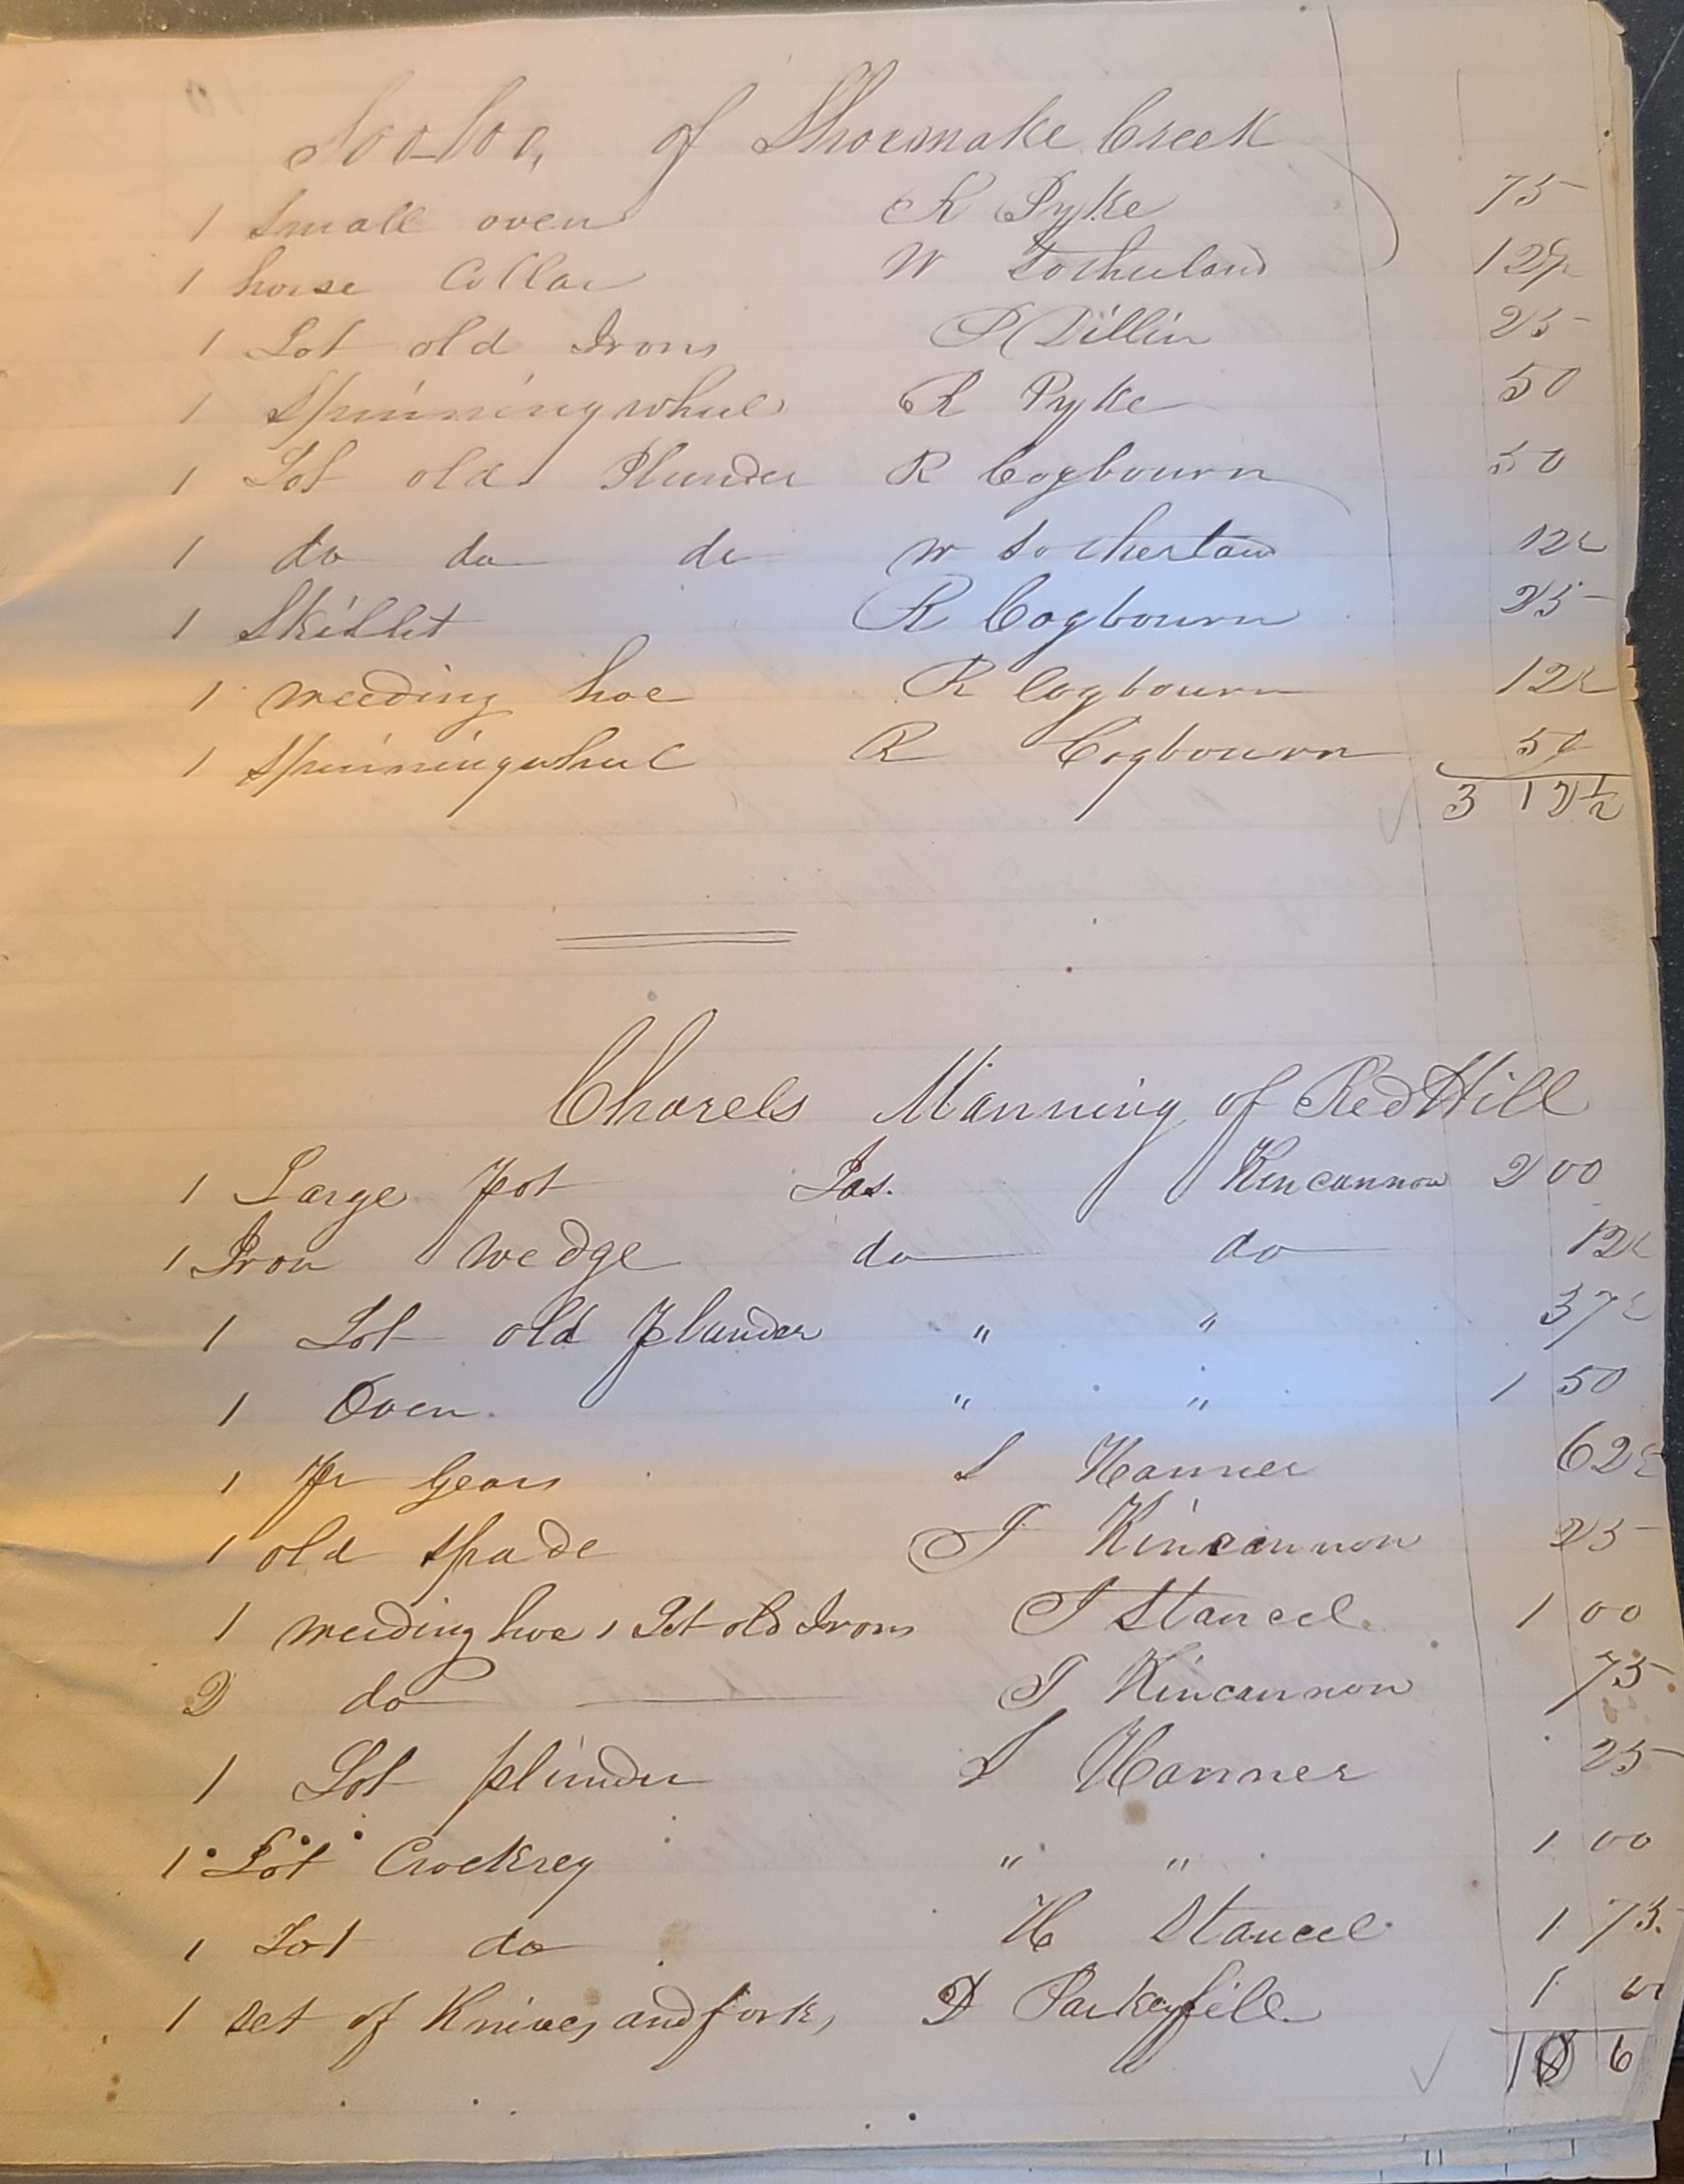 Soo-loo, of Shoemake Creek
1 Small oven R Pyke 75
1 horse Collar W Sotherland 12½
1 Lot old Irons P Dillin 25
1 Spinningwheel R Pyke 50
1 Lot old Plunder R Cogbourn 50
1 do do do W Sotherland 12½
1 Skillet R Cogbourn 25
1 weeding hoe R Cogbourn 12½
1 Spinningwheel R Cogbourn 50
3 12½
Charels Manning of Red Hill
1 Large Pot Jas. Kincannon 2 00
1 Iron Wedge do do 12½
1 Lot old Plunder " " 37½
1 Oven " " 1 50
1 Pr Gears S Hanner 62½
1 old Spade J Kincannon 25
1 weeding hoe 1 Lot old Irons J Stancel 1 00
2 do J Kincannon 75
1 Lot plunder S Hanner 25
1 Lot Crockrey " " 1 00
1 Lot do H Stancel 1 75
1 Set of Knives and forks D Parkeyfile 1